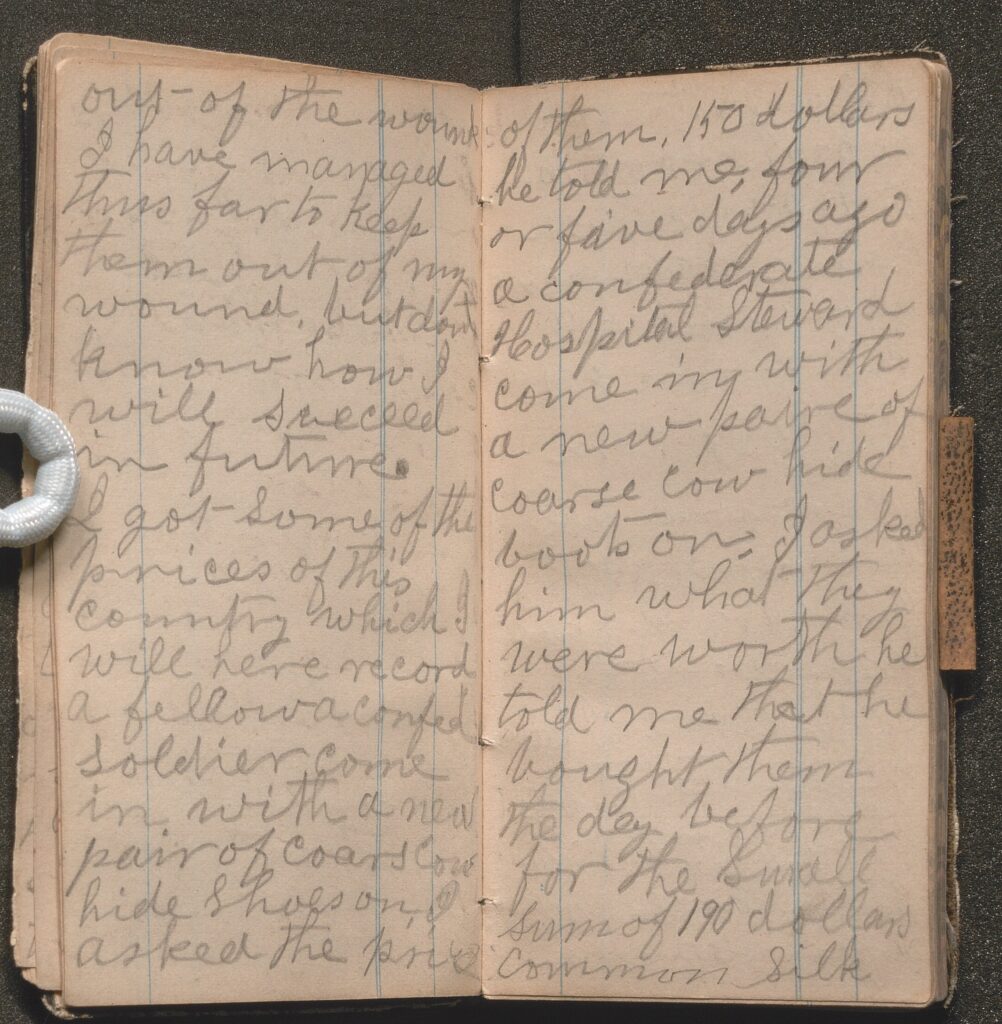 out of the wound
I have managed
thus far to keep
them out of my
wound, but dont
know how I
will suceed
in future.
I got some of the
prices of this
country which I
will here record
a fellow a confed
soldier come
in with a new
pair of coars cow
hide shoes on, I
asked the price
of them, 150 dollars
he told me, four
or faive days ago
a confederate
Hospital Steward
come in with
a new paire of
coarse cow hide
boots on. I asked
him what they
were worth he
told me that he
bought them
the day before
for the small
sum of 190 dollars
common silk